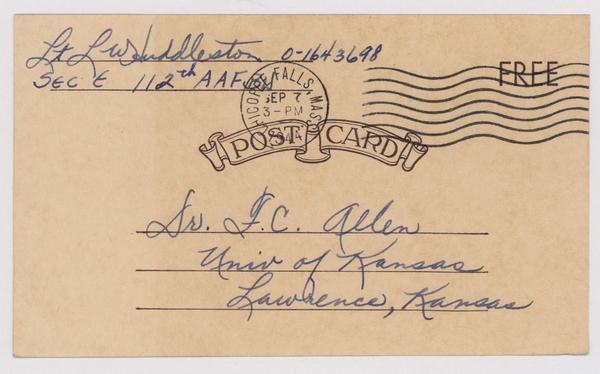 Lt L W Huddleston O-1643698
SEC E 112th AAF
FREE
CHICOPEE FALLS, MASS.
SEP 7
3-PM
1944
POST CARD
Dr. F.C. Allen
Univ of Kansas
Lawrence, Kansas